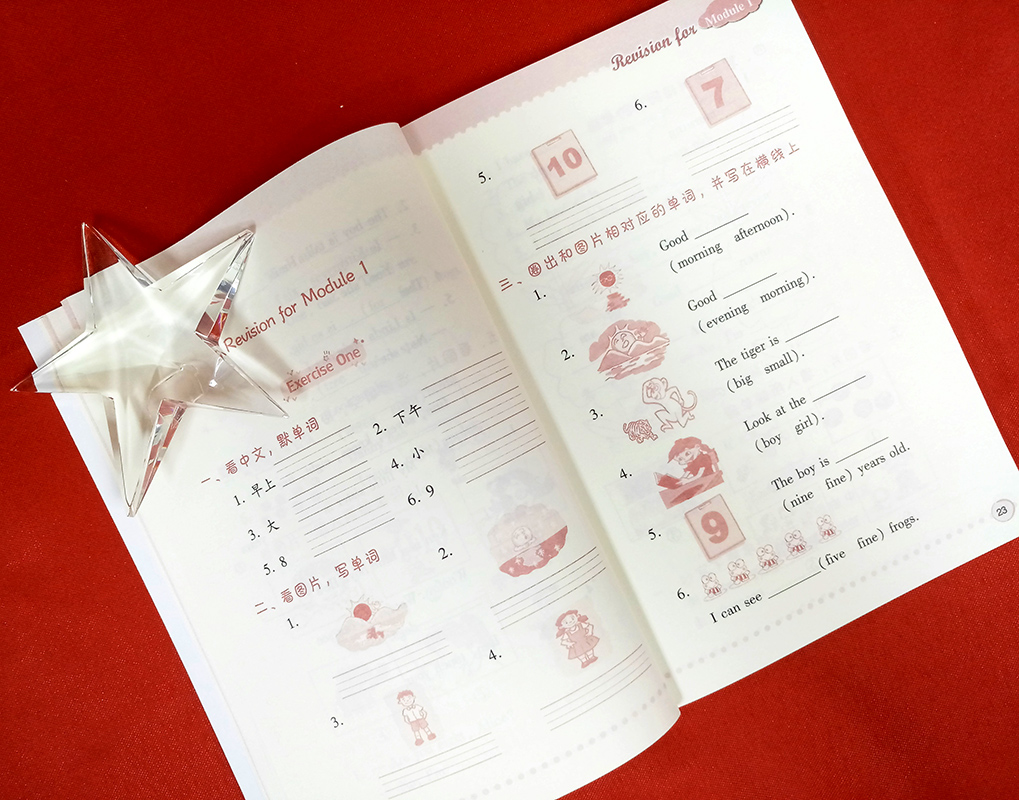 Revision for Module 1
Exercise One
一、看中文，默单词
1. 早上
2. 下午
3. 大
4. 小
5. 8
6. 9
二、看图片，写单词
1.
2.
3.
4.
Revision for Module 1
5. 10
6. 7
三、圈出和图片相对应的单词，并写在横线上
1. Good ______
(morning afternoon).
2. Good ______
(evening morning).
3. The tiger is ______
(big small).
4. Look at the ______
(boy girl).
5. 9 The boy is ______
(nine fine) years old.
6. I can see ______ (five fine) frogs.
23